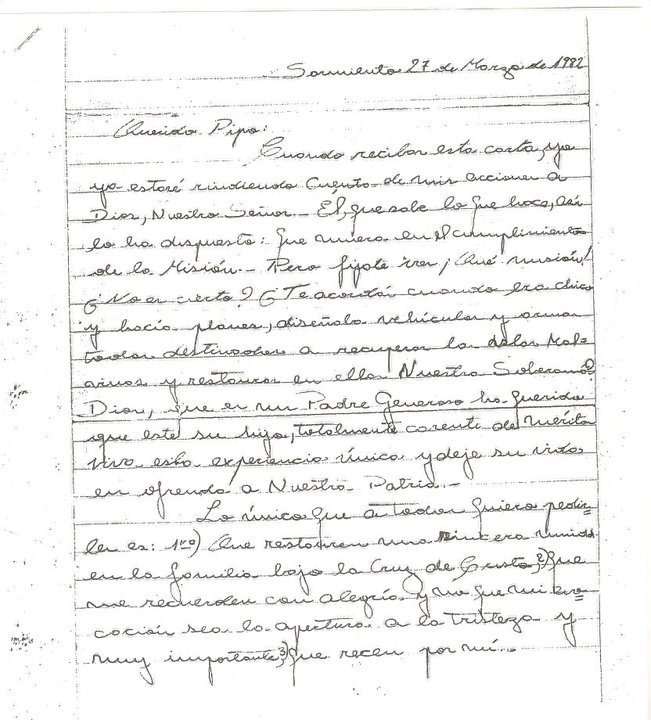 Sarmiento 27 de Marzo de 1982
Querido Pipo:
Cuando recibas esta carta, yo
ya estaré rindiendo Cuenta de mis acciones a
Dios, Nuestro Señor.- El, que sabe lo que hace, así
lo ha dispuesto: que muera en el cumplimiento
de la Misión.- Pero fijate vos ¡Qué misión!
¿No es cierto? ¿Te acordás cuando era chico
y hacía planes, diseñaba vehículos y armas
todos destinados a recuperar las islas Mal-
vinas y restaurar en ellas Nuestra Soberanía?
Dios, que es un Padre Generoso ha querido
que este su hijo, totalmente carente de mérito
viva esta experiencia única y deje su vida
en ofrenda a Nuestra Patria.-
Lo único que a todos quiero pedir-
les es: 1ro) Que restauren una sincera unidad
en la familia bajo la Cruz de Cristo, 2) Que
me recuerden con alegría y no que mi evo-
cación sea la apertura a la tristeza y
muy importante, 3) Que recen por mí.-